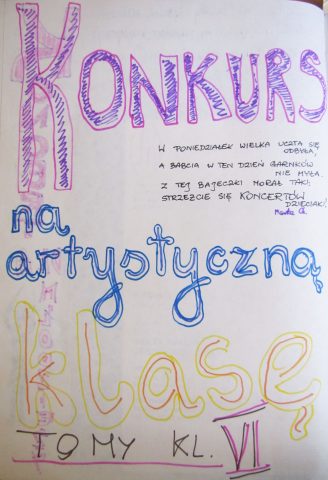 KONKURS
W PONIEDZIAŁEK WIELKA UCZTA SIĘ
ODBYŁA,
A BABCIA W TEN DZIEŃ GARNKÓW
NIE MYŁA.
Z TEJ BAJECZKI MORAŁ TAKI:
STRZEŻCIE SIĘ KONCERTÓW
DZIECIAKI.
na
artystyczną
klasę
TO MY KL. VI